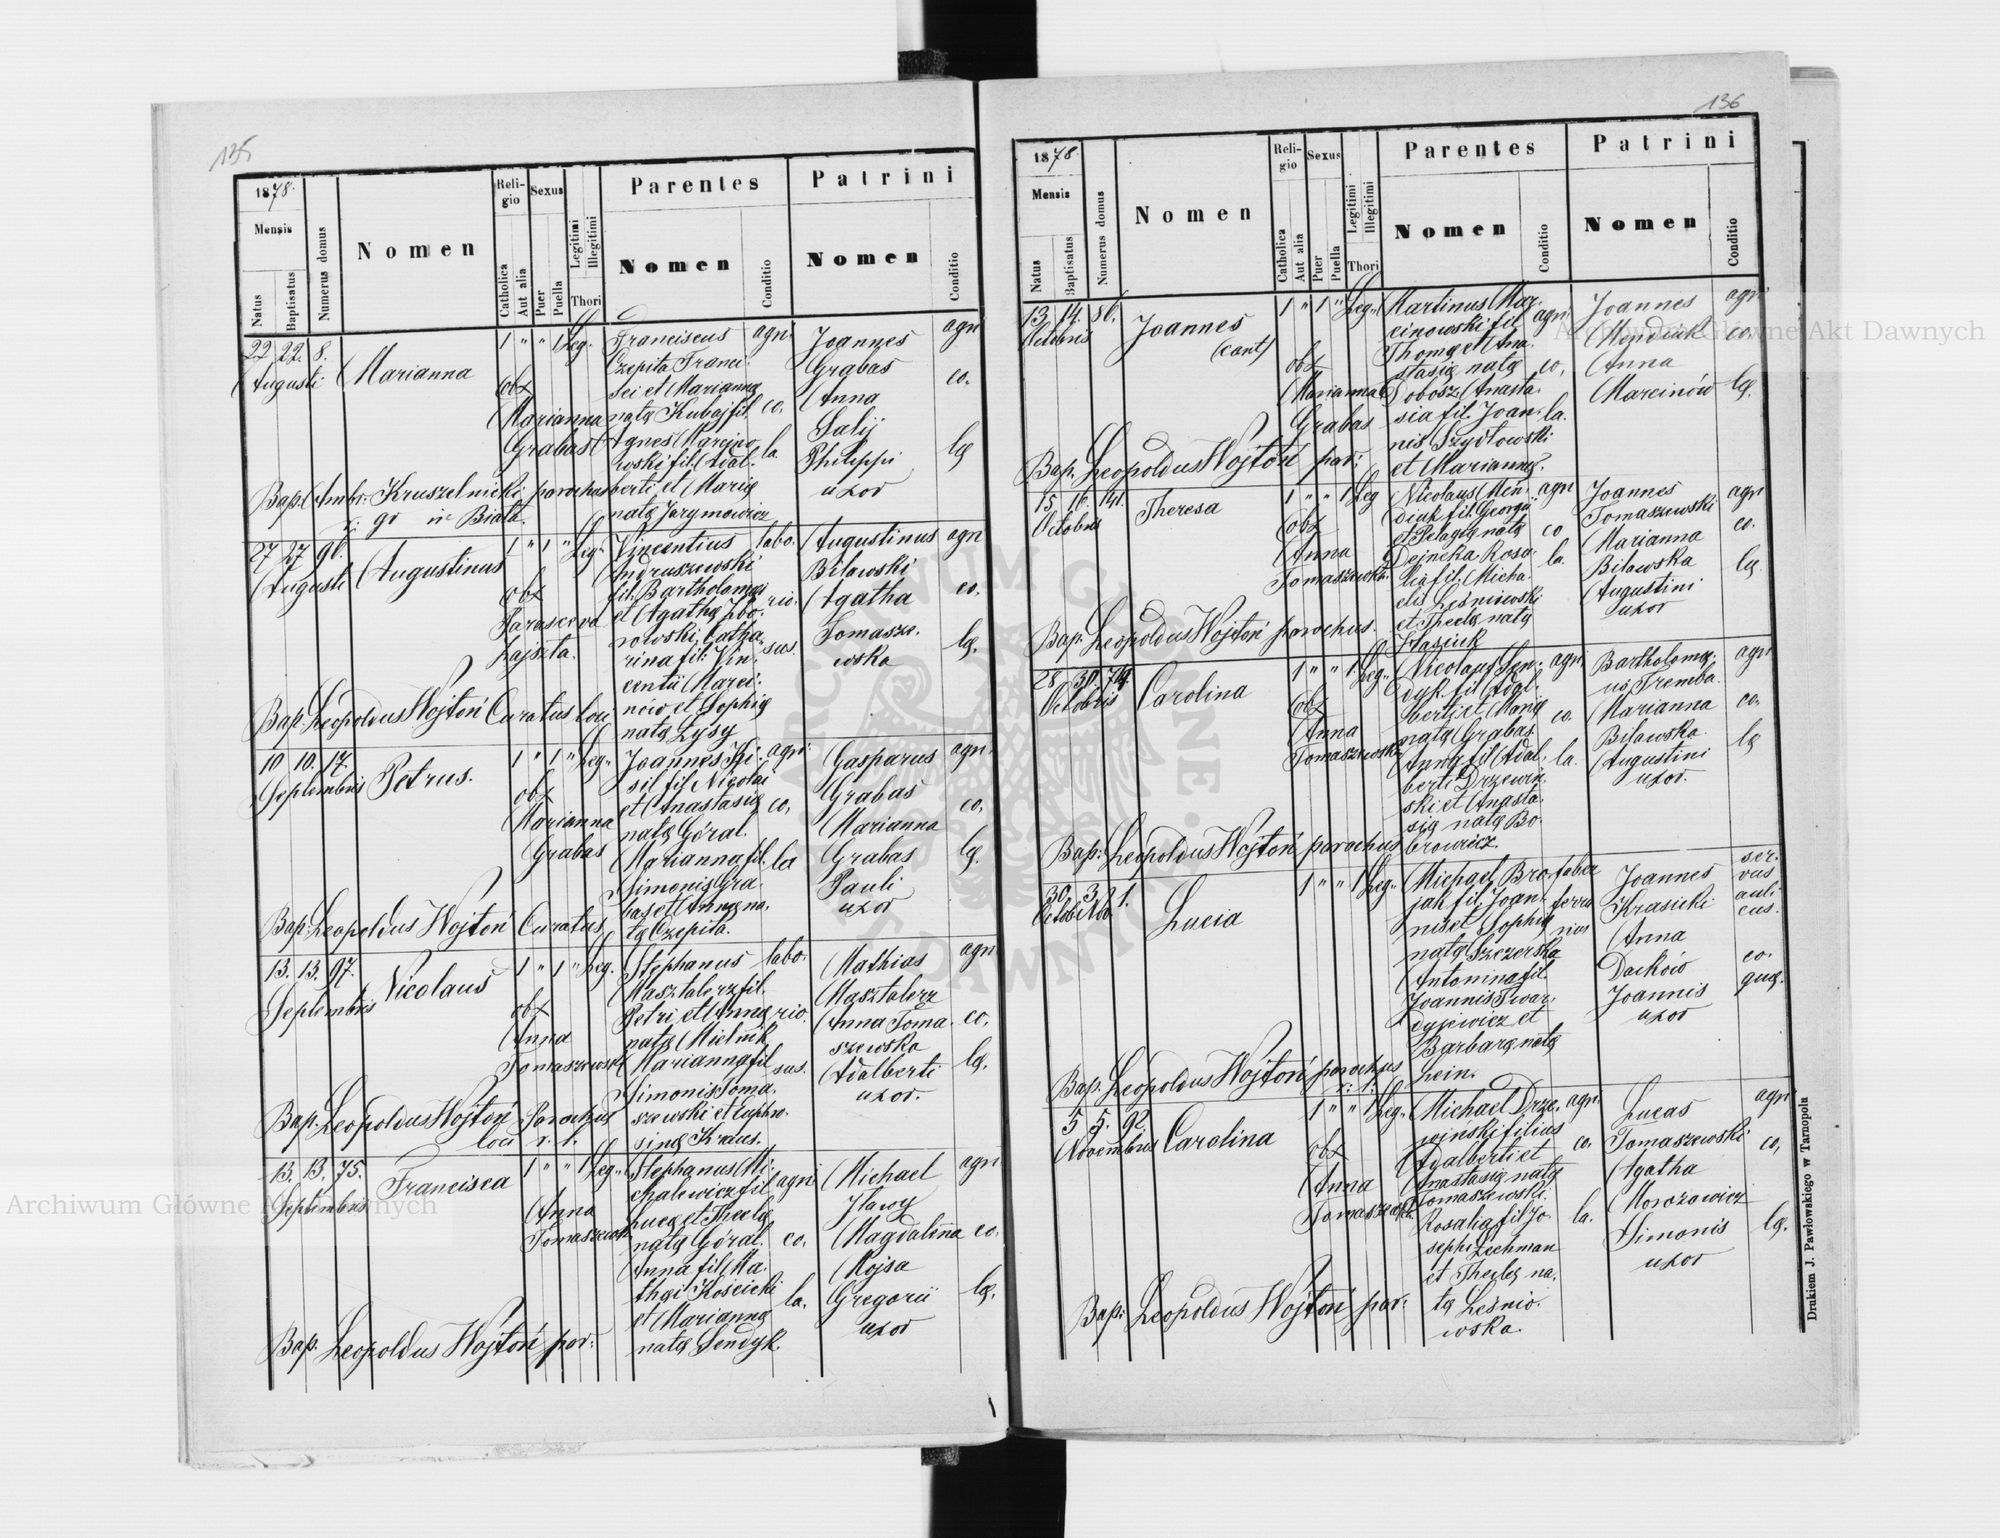 135
1878.
Mensis
Natus
Baptisatus
Numerus domus
Nomen
Religio
Catholica
Aut alia
Sexus
Puer
Puella
Legitimi
Illegitimi
Thori
Parentes
Nomen
Conditio
Patrini
Nomen
Conditio
22 22. 8.
Augusti
Marianna
1 " " 1 Leg.
obx
Marianna
Grabas
Franciscus
Czepita Franci
sci et Marianna
nata Kubaj fil.
Agnes Marcino
wski fil. Adal.
berti et Maria
nata Jarymowicz
agri
co.
la
Joannes
Grabas
Anna
Salij
Philippi
uxor
agri
co.
la
Bap. Ambr. Kruszelnicki parochus
r. gr in Biała.
27 27 90.
Augusti
Augustinus
1 " 1 " Leg.
obx
Parasceva
Łajszta.
Vincentius
Andruszewski
fil. Bartholomaei
et Agatha Zbo
rowski, Catha
rina fil. Vin
centii Marci
nów et Sophia
nata Łysy
labo.
rio.
sus.
Augustinus
Bilawski
Agatha
Tomasze.
wska
agri
co.
la.
Bap. Leopoldus Wojtoń Curatus loci
10 10. 17.
Septembris
Petrus.
1 " 1 " Leg.
obx
Marianna
Grabas
Joannes Ki
sil fil Nicolai
et Anastasia
nata Góral.
Marianna fil.
Simonis Gra.
bas et Anna na.
ta Czepita.
agri.
co,
la
Gasparus
Grabas
Marianna
Grabas
Pauli
uxor
agri.
co,
la.
Bap. Leopoldus Wojtoń Curatus
13. 13. 97.
Septembris
Nicolaus
1 " 1 " Leg.
obx
Anna
Tomaszewska
Stephanus
Masztalerz fil.
Petri et Anna
nata Mielnik
Marianna fil
Simonis Toma.
szewski et Euphro.
sina Kraus.
labo.
rio.
sus.
Mathias
Masztalerz
Anna Toma.
szewska
Adalberti
uxor.
agri.
co,
la.
Bap. Leopoldus Wojtoń Parochus
loci r. l.
13. 13. 75.
Septembris
Francisca
1 " " 1 Leg.
Anna
Tomaszewska
Stephanus Mi
chalewicz fil
Luca et Thecla
nata Góral.
Anna fil Ma.
thai Kościcki
et Marianna
nata Sendyk.
agri
co.
la.
Michael
Hawy
Magdalena
Mojsa
Gregorii
uxor
agri
co.
la.
Bap. Leopoldus Wojtoń par:
136
1878.
Mensis
Natus
Baptisatus
Numerus domus
Nomen
Religio
Catholica
Aut alia
Sexus
Puer
Puella
Legitimi
Illegitimi
Thori
Parentes
Nomen
Conditio
Patrini
Nomen
Conditio
13. 14. 86.
Octobris
Joannes
(Cant)
1 " 1 " Leg.
obx
Marianna
Grabas
Martinus Mar.
cinowski fil
Thoma et Ana.
stasia nata
Dobosz Anasta.
sia fil. Joan.
nis Szydłowski
et Marianna.
agri
co,
la.
Joannes
Mendiuk
Anna
Marcinów
agri
co.
la.
Bap. Leopoldus Wojtoń par:
15 16. 141.
Octobris
Theresa
1 " " 1 Leg
obx
Anna
Tomaszewska
Nicolaus Men.
diuk fil. Georgii
et Pelagia nata
Dejneka Rosa.
lia fil. Micha.
elis Leśniowski
et Thecla nata
Stasiuk
agri
co
la.
Joannes
Tomaszewski
Marianna
Bilawska
Augustini
uxor
agri
co.
la.
Bap. Leopoldus Wojtoń parochus.
28 30. 74.
Octobris
Carolina
1 " " 1 Leg.
obx
Anna
Tomaszewska
Nicolaus Sen.
dyk fil Adal.
berti et Maria
nata Grabas
Anna fil Adal.
berti Drzewiń.
ski et Anasta.
sia nata Bo.
browicz.
agri.
co.
la.
Bartholomae.
us Tremba.
Marianna
Bilawska
Augustini
uxor.
agri
co.
la
Bap. Leopoldus Wojtoń parochus
30. 3 1.
Octob. Nov.
Lucia
1 " " 1 Leg.
Michael Bro.
jak fil Joan.
nis et Sophia
nata Szczerska
Antonina fil.
Joannis Twar.
dyjewicz et
Barbara nata
Hein.
faber
ferra
rius
Joannes
Krasicki
Anna
Daćków
Joannis
uxor
ser.
vus
auli
cus.
co.
qua.
Bap. Leopoldus Wojtoń parochus
r. l.
5 5. 92.
Novembris
Carolina
1 " " 1 Leg.
obx
Anna
Tomaszewska
Michael Drze.
wiński filius
Adalberti et
Anastasia nata
Tomaszewski.
Rosalia fil Jo.
sephi Lechman
et Thecla na.
ta Leśnio.
wska.
agri.
co.
la.
Lucas
Tomaszewski
Agatha
Morozowicz
Simonis
uxor
agri
co,
la.
Bap. Leopoldus Wojtoń par:
Drukiem J. Pawłowskiego w Tarnopolu
Archiwum Główne Akt Dawnych
Archiwum Główne Akt Dawnych